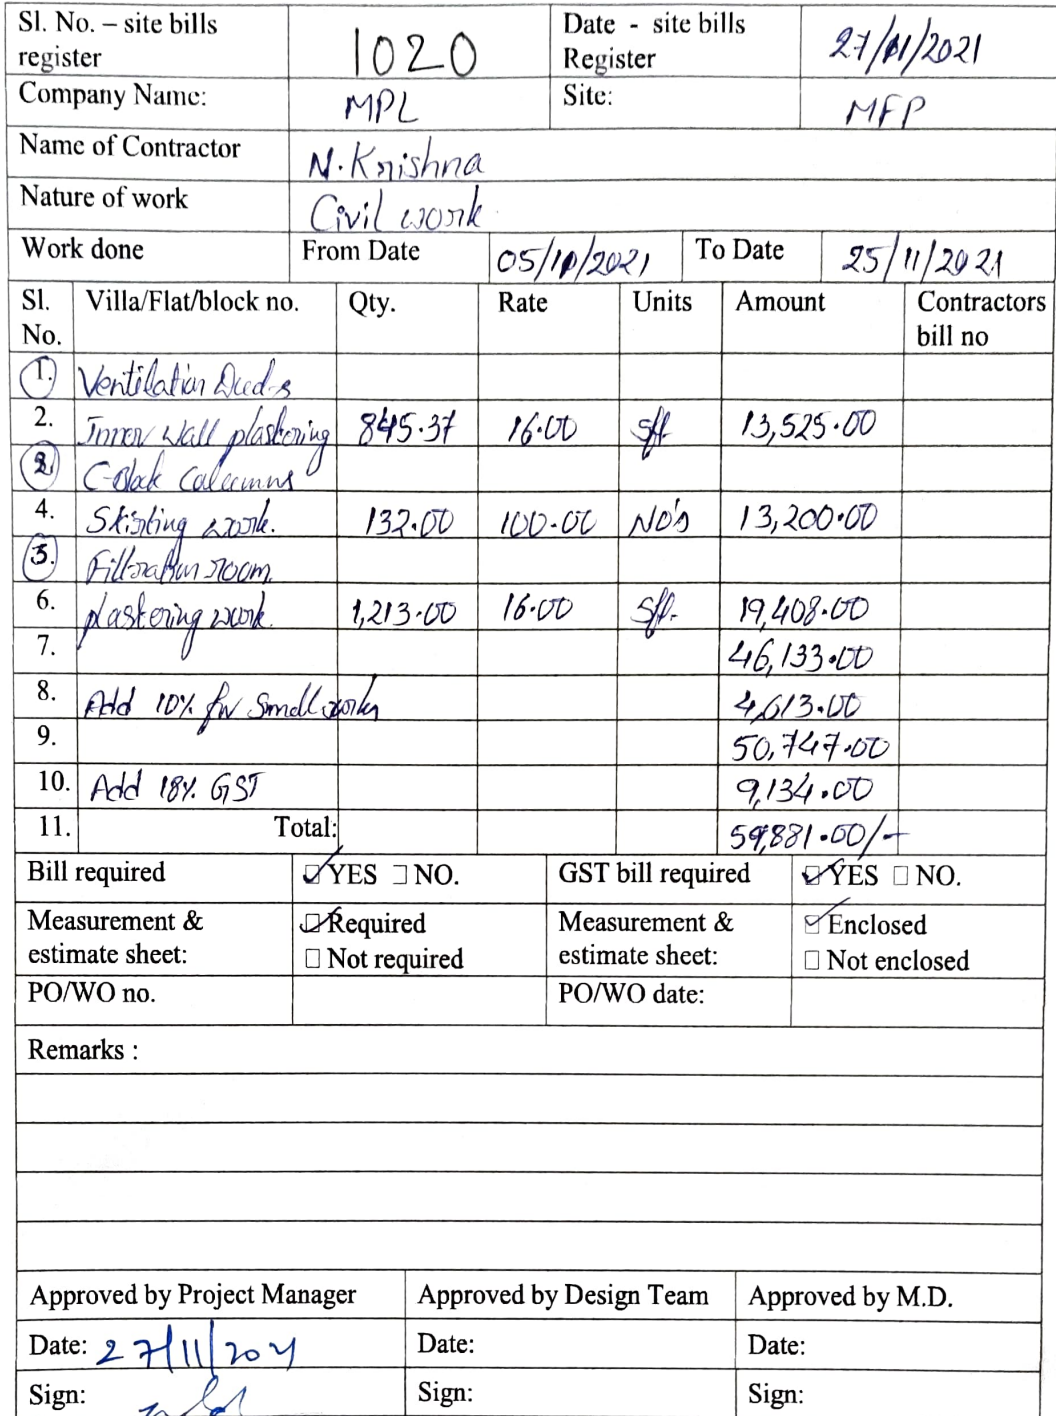 Sl. No. – site bills register 1020 Date - site bills Register 27/11/2021
Company Name: MPL Site: MFP
Name of Contractor N. Krishna
Nature of work Civil work
Work done From Date 05/10/2021 To Date 25/11/2021
Sl. No. Villa/Flat/block no. Qty. Rate Units Amount Contractors bill no
1. Ventilation Ducts
2. Inner wall plastering 845.37 16.00 sft 13,525.00
3. C-Block Coleumns
4. Skirting work. 132.00 100.00 No's 13,200.00
5. Filtration room.
6. plastering work. 1,213.00 16.00 sft. 19,408.00
7. 46,133.00
8. Add 10% for small works 4,613.00
9. 50,747.00
10. Add 18% GST 9,134.00
11. Total: 59,881.00/-
Bill required YES NO. GST bill required YES NO.
Measurement & estimate sheet: Required Measurement & estimate sheet: Enclosed
Not required Not enclosed
PO/WO no. PO/WO date:
Remarks :
Approved by Project Manager Approved by Design Team Approved by M.D.
Date: 27/11/2021 Date: Date:
Sign: Sign: Sign: